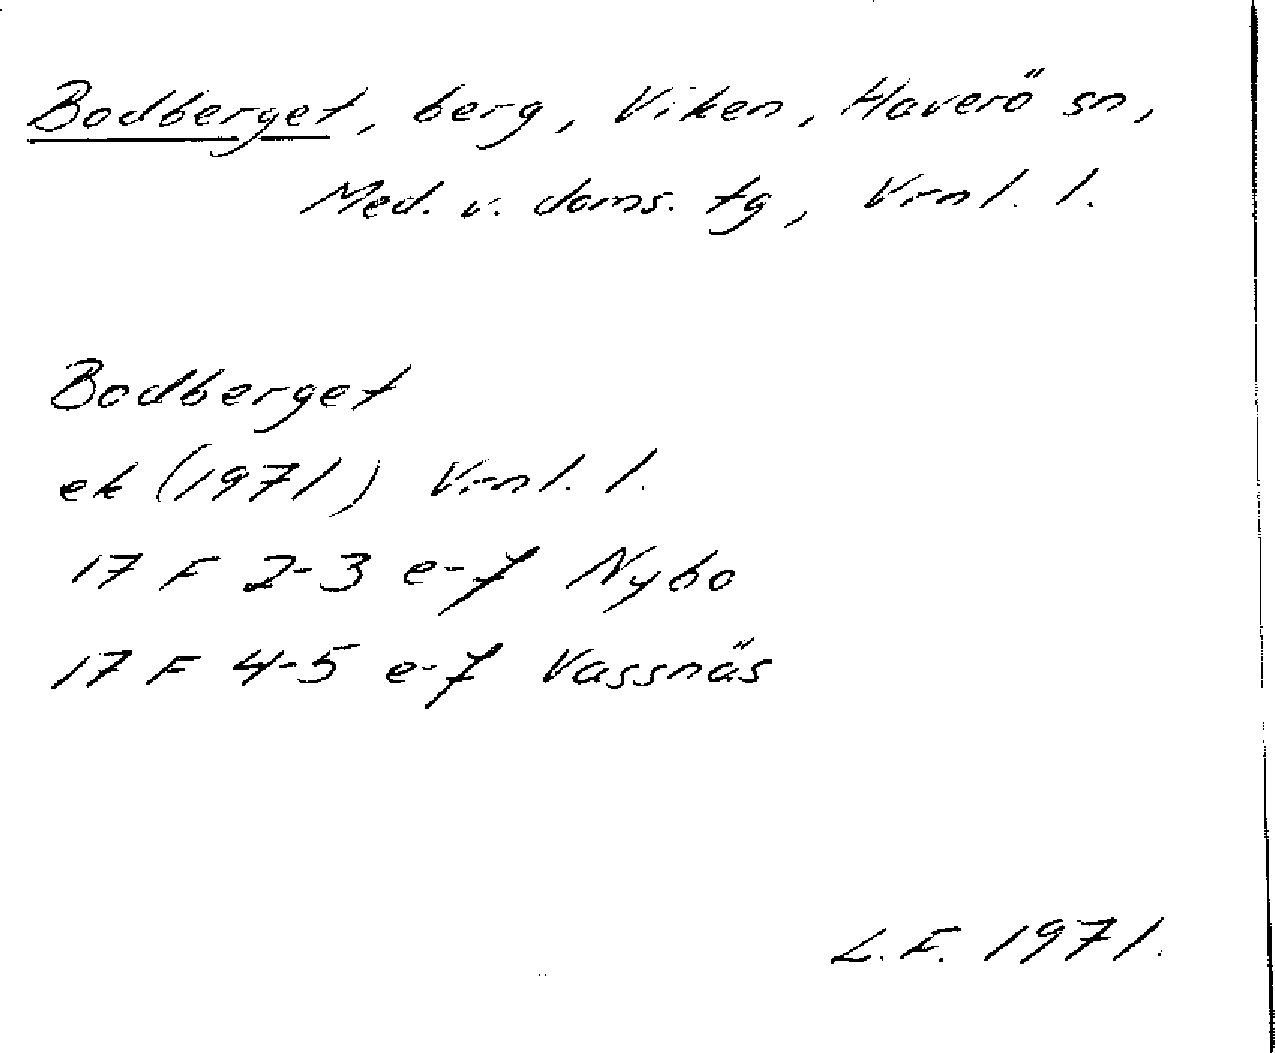 Bodberget, berg, Viken, Haverö sn,
Med. v. doms. tg, Vrnl. l.
Bodberget
ek (1971) Vrnl. l.
17 F 2-3 e-f Nybo
17 F 4-5 e-f Vassnäs
L.F. 1971.